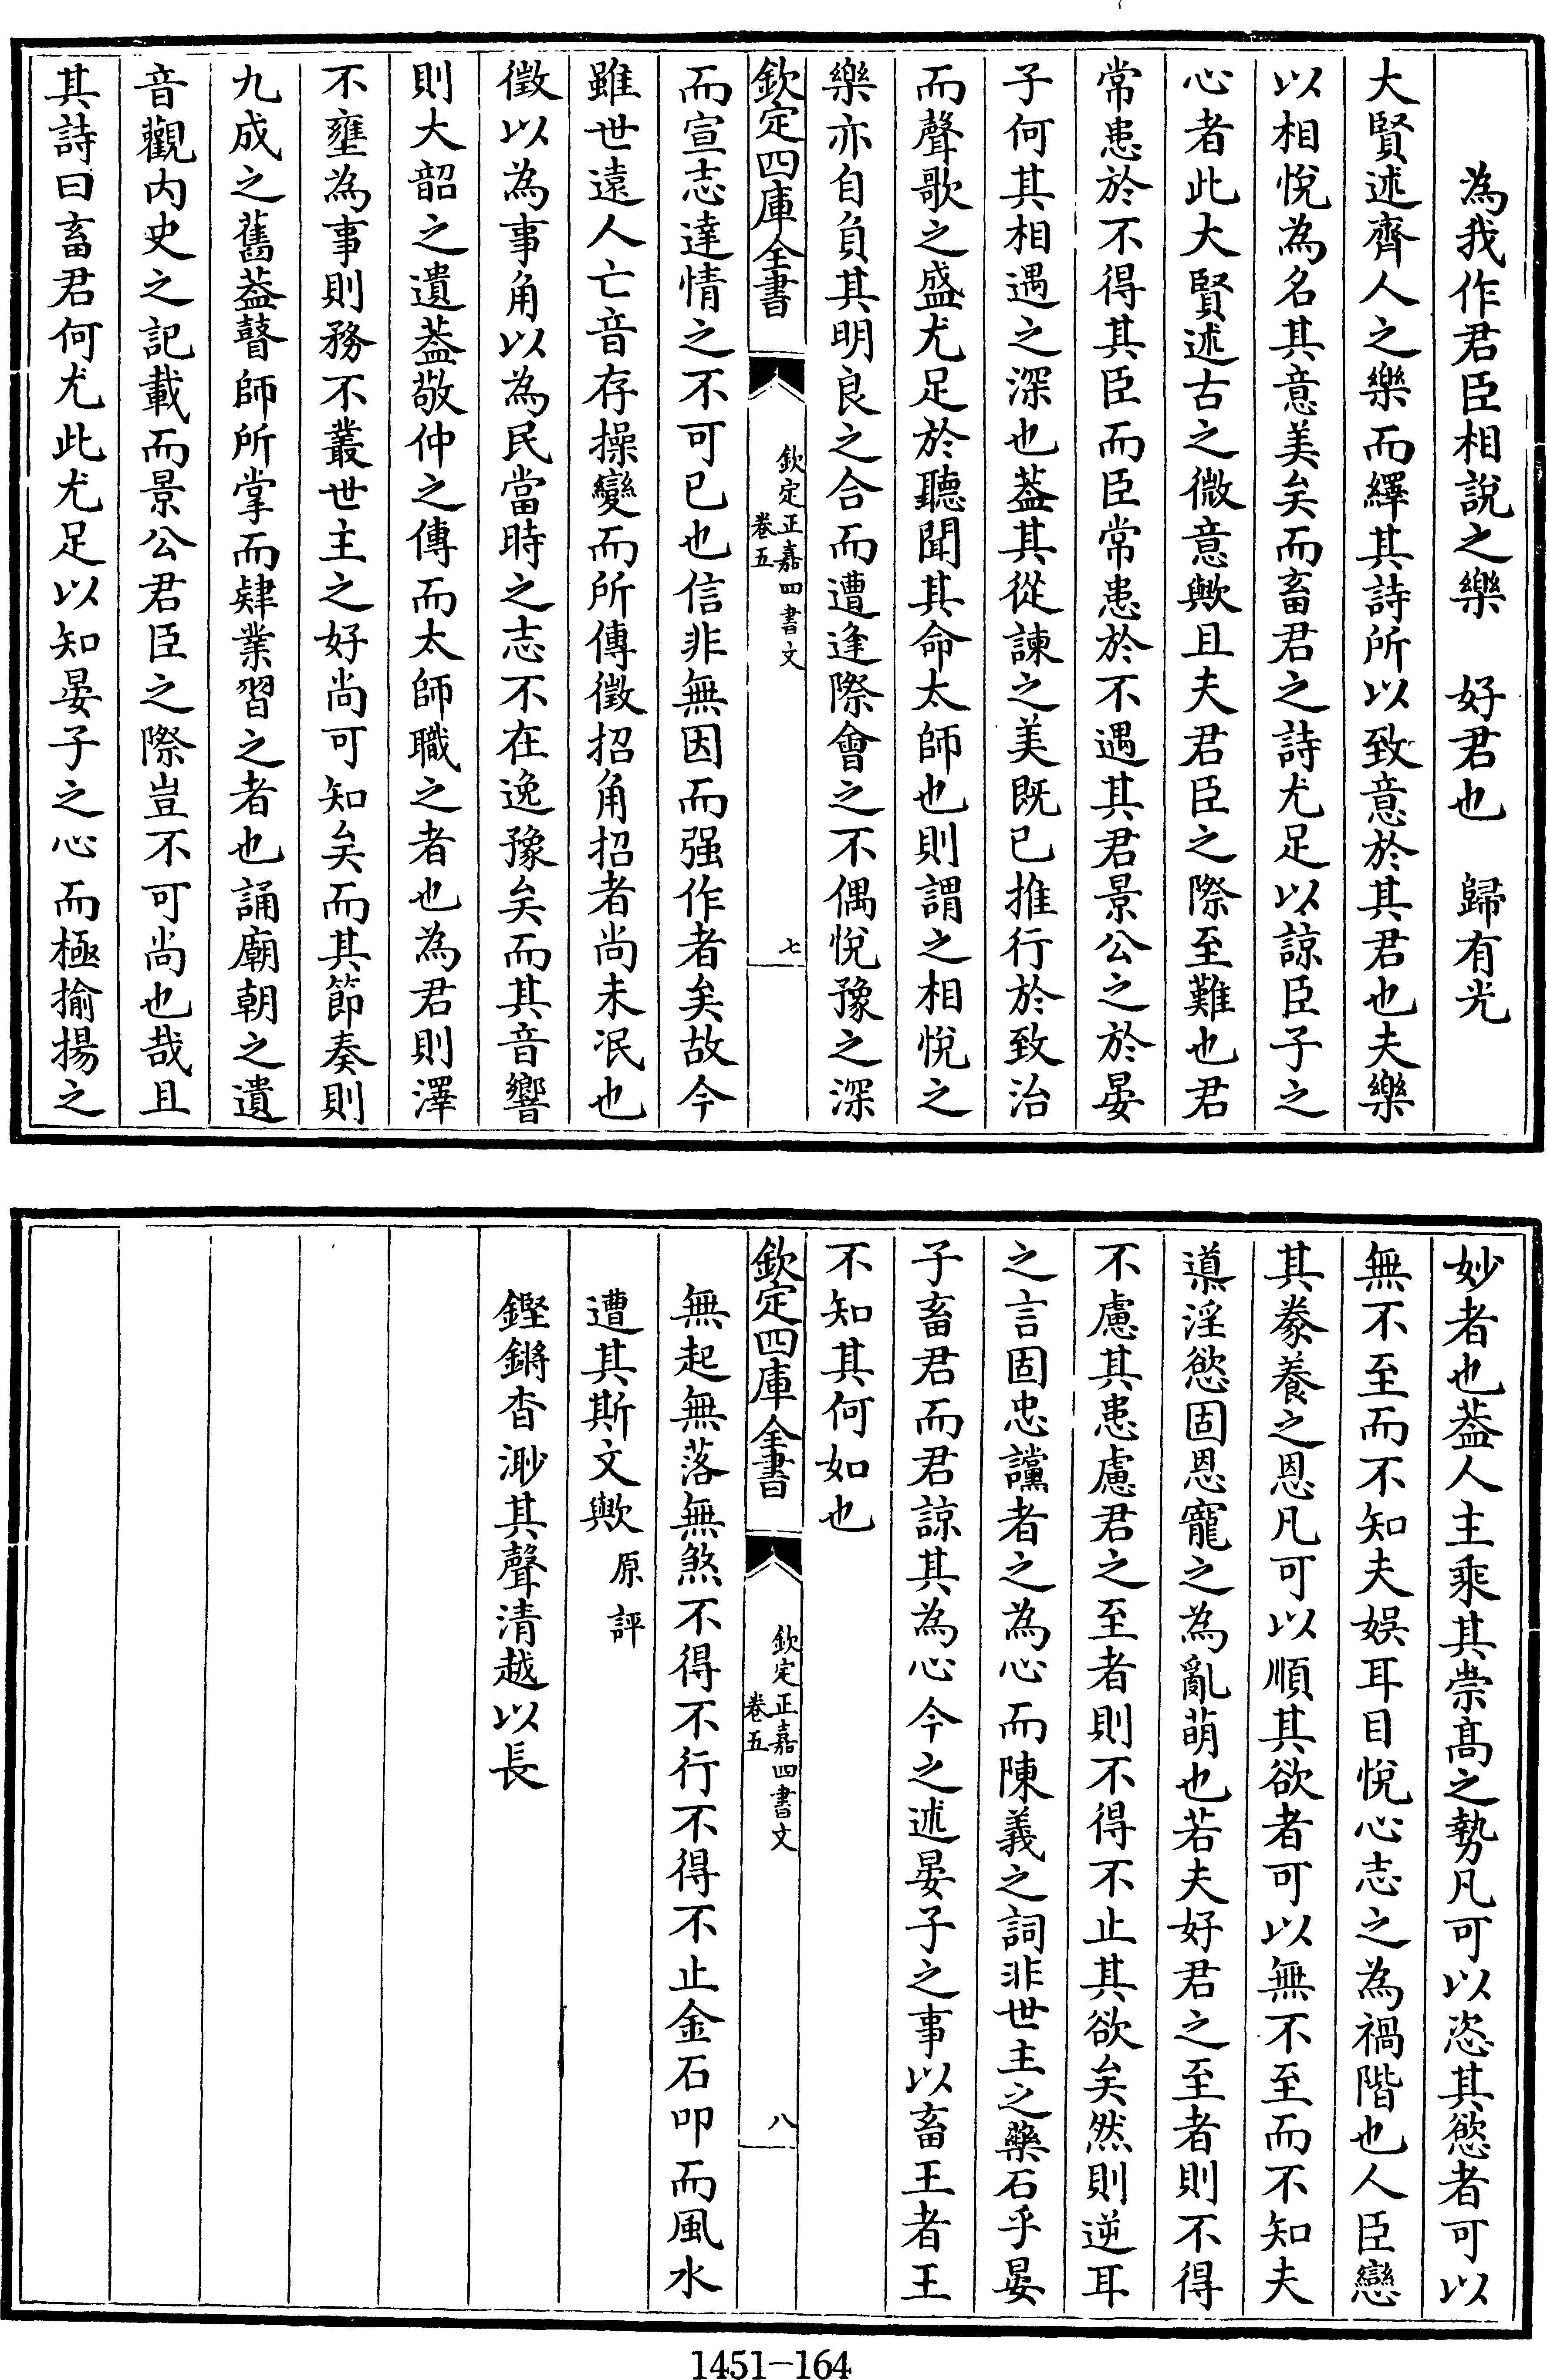 為我作君臣相説之樂　好君也　歸有光
大賢述齊人之樂而繹其詩所以致意於其君也夫樂
以相悅為名其意美矣而畜君之詩尤足以諒臣子之
心者此大賢述古之微意歟且夫君臣之際至難也君
常患於不得其臣而臣常患於不遇其君景公之於晏
子何其相遇之深也葢其從諫之美既已推行於致治
而聲歌之盛尤足於聽聞其命太師也則謂之相悅之
樂亦自負其明良之合而遭逢際會之不偶悅豫之深
欽定四庫全書
欽定正嘉四書文
卷五
七
而宣志達情之不可已也信非無因而强作者矣故今
雖世遠人亡音存操變而所傳徵招角招者尚未泯也
徵以為事角以為民當時之志不在逸豫矣而其音響
則大韶之遺葢敬仲之傳而太師職之者也為君則澤
不壅為事則務不叢世主之好尚可知矣而其節奏則
九成之舊葢瞽師所掌而肄業習之者也誦廟朝之遺
音觀内史之記載而景公君臣之際豈不可尚也哉且
其詩曰畜君何尤此尤足以知晏子之心而極揄揚之
妙者也葢人主乘其崇髙之勢凡可以恣其慾者可以
無不至而不知夫娱耳目悅心志之為禍階也人臣戀
其豢養之恩凡可以順其欲者可以無不至而不知夫
導淫慾固恩寵之為亂萌也若夫好君之至者則不得
不慮其患慮君之至者則不得不止其欲矣然則逆耳
之言固忠讜者之為心而陳義之詞非世主之藥石乎晏
子畜君而君諒其為心今之述晏子之事以畜王者王
不知其何如也
欽定四庫全書
欽定正嘉四書文
卷五
八
無起無落無煞不得不行不得不止金石叩而風水
遭其斯文歟原評
鏗鏘杳渺其聲清越以長
1451-164